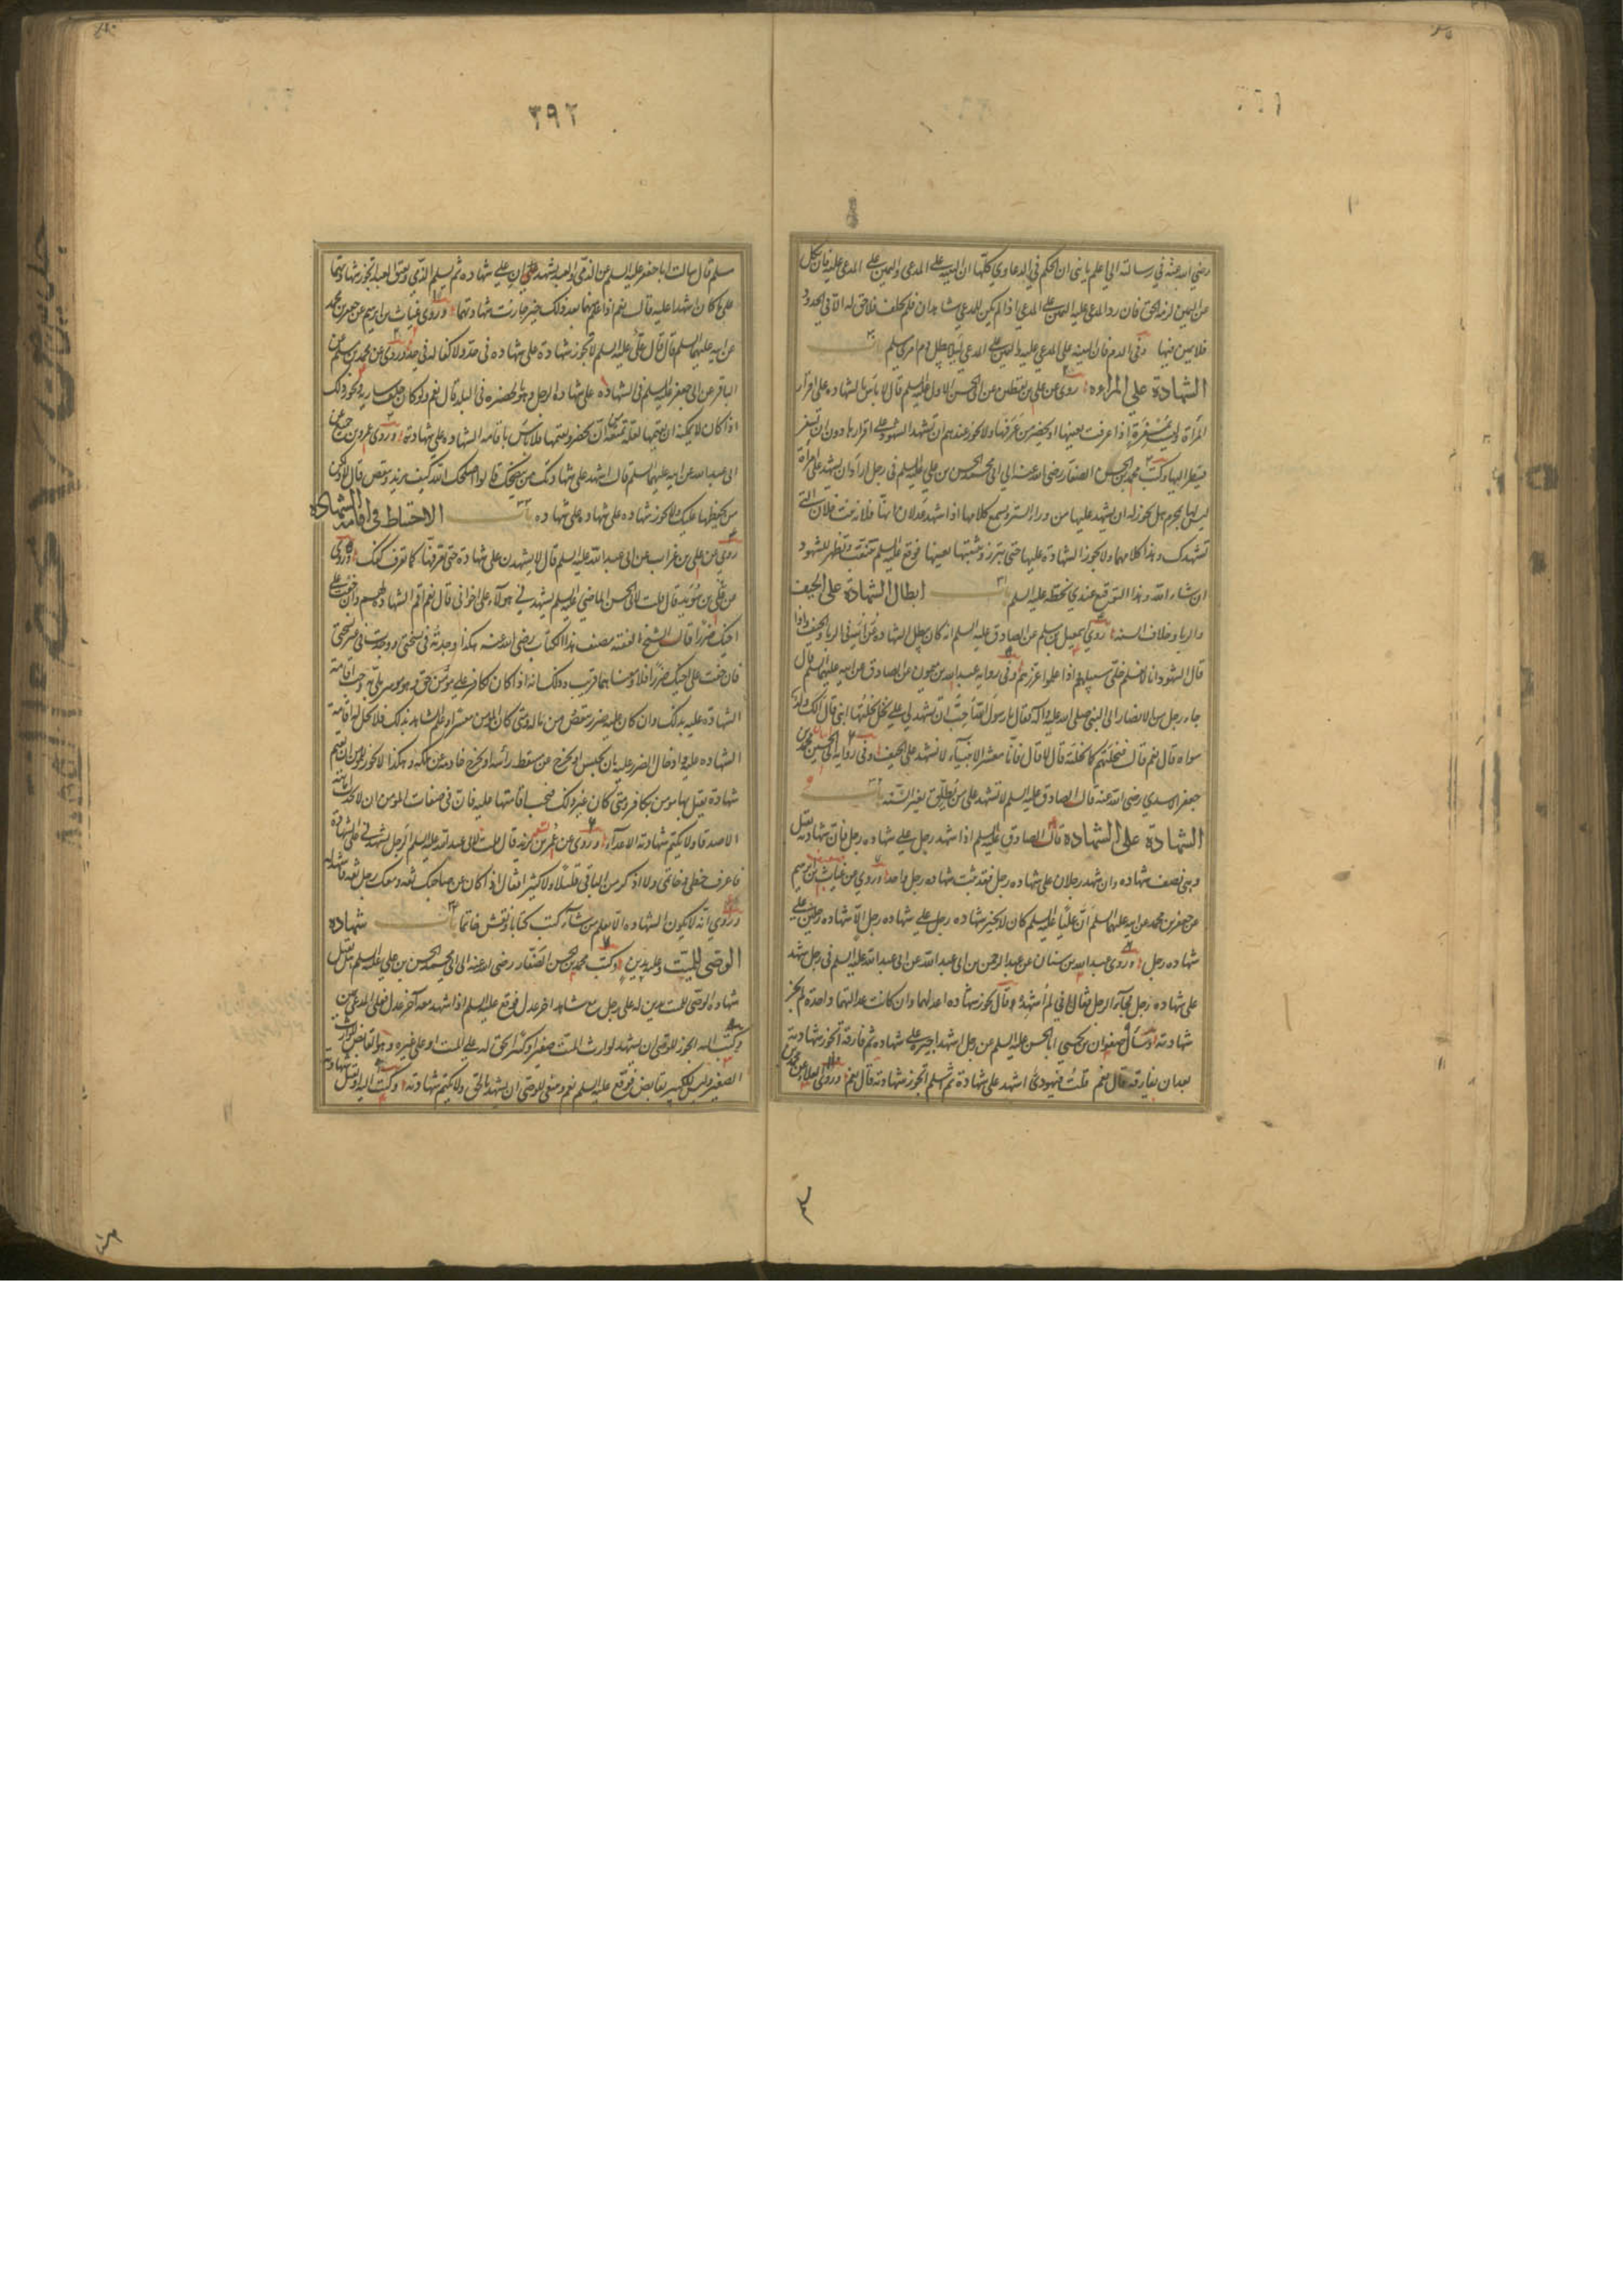 رضي الله عنه في رسالته الي اعلم يا بني ان الحكم في الدعاوي كلها ان البينه علي المدعي واليمين علي المدعي عليه فان نكل
من اليمين لزمه الحق فان رد المدعي عليه اليمين علي المدعي اذا لم يكن للمدعي شاهدان فلم يحلف فلا حق له الا في الحدود
فلا يمين فيها وفي الدم فان البينه علي المدعي عليه واليمين علي المدعي لئلا يبطل دم امرئ مسلم باب
الشهادة علي المراءه روي عن علي بن يقطين عن ابي الحسن الاول عليه السلم قال لا باس بالشهاده علي اقرار
المرأة وليست بمسفرة اذا عرفت بعينها او يحضر من عرفها ولا يجوز عندهم ان يشهد الشهود علي اقرارها دون ان تسفر
فينظر اليها وكتب محمد بن الحسن الصفار رضي الله عنه الي ابي محمد الحسن بن علي عليه السلم في رجل اراد ان يشهد علي امرأة
ليس لها بمحرم هل يجوز له ان يشهد عليها من وراء الستر ويسمع كلامها اذا شهد عدلان انها فلانة بنت فلان التي
تشهدك وهذا كلامها ولا يجوز الشهادة عليها حتي تبرز وتثبتها بعينها فوقع عليه السلم تتنقب وتظهر للشهود
ان شاء الله وهذا التوقيع عندي بخطه عليه السلم باب ابطال الشهادة علي الحيف
والربا وخلاف السنه روي اسمعيل بن مسلم عن الصادق عليه السلم
قال الشهود انا لا نعلم خلي سبيلهم واذا علموا عزرهم وفي روايه عبد الله بن ميمون عن الصادق عن ابيه عليهما السلم قال
جاء رجل من الانصار الي النبي صلي الله عليه واله فقال يا رسول الله احب ان تشهد لي علي نحل نحلتها ابني قال الك ولد
سواه قال نعم قال فنحلتهم كما نحلته قال لا قال فانا معشر الانبياء لا نشهد علي الحيف وفي روايه ابي الحسين محمد بن
جعفر الاسدي رضي الله عنه قال الصادق عليه السلم لا تشهد علي من يطلق لغير السنه باب
الشهادة علي الشهاده قال الصادق عليه السلم اذا شهد رجل علي شهاده رجل فان شهادته تقبل
وهي نصف شهاده وان شهد رجلان علي شهاده رجل فقد ثبت شهاده رجل واحد وروي عن غياث بن ابرهيم
عن جعفر بن محمد عن ابيه عليهما السلم ان عليا عليه السلم كان لا يجيز شهاده رجل علي شهاده رجل الا شهاده رجلين علي
شهاده رجل وروي عبد الله بن سنان عن عبد الرحمن بن ابي عبد الله عن ابي عبد الله عليه السلم في رجل شهد
علي شهاده رجل فجاء الرجل فقال اني لم اشهده قال يجوز شهاده اعدلهما وان كانت عدالتهما واحدة لم يجز
شهادته وسأل صفوان بن يحيي ابا الحسن عليه السلم عن رجل اشهد اجيره علي شهاده ثم فارقه اتجوز شهادته
بعد ان يفارقه قال نعم قلت فيهودي اشهد علي شهادة ثم اسلم اتجوز شهادته قال نعم وروي العلاء عن محمد بن
٣٩٢
مسلم قال سالت ابا جعفر عليه السلم عن الذمي والعبد يشهدان علي شهاده ثم يسلم الذمي ويعتق العبد اتجوز شهادتهما
علي ما كانا اشهدا عليه قال نعم اذا علم منهما بعد ذلك خير جازت شهادتهما وروي غياث بن ابرهيم عن جعفر بن محمد
عن ابيه عليهما السلم قال قال علي عليه السلم لا تجوز شهادة علي شهاده في حد ولا كفاله في حد وروي عن محمد بن مسلم عن
الباقر عن ابي جعفر عليه السلم في الشهاده علي شهاده الرجل وهو بالحضره في البلد قال نعم ولو كان خلف ساريه ويجوز ذلك
اذا كان لا يمكنه ان يقيمها لعلة تمنعه ان يحضر ويقيمها فلا باس باقامه الشهاده علي شهادته وروي عمرو بن جميع عن
ابي عبد الله عن ابيه عليهما السلم قال اشهد علي شهادتك من ينصحك قالوا اصلحك الله كيف يزيد وينقص قال لا ولكن
من يحفظها عليك ولا يجوز شهاده علي شهاده علي شهاده باب الاحتياط في اقامة الشهاده
روي عن علي بن غراب عن ابي عبد الله عليه السلم قال لا تشهدن علي شهادة حتي تعرفها كما تعرف كفك وروي
عن علي بن سويد قال قلت لابي الحسن الماضي عليه السلم يشهدني هولاء علي اخواني قال نعم اقم الشهاده لهم وان خفت علي
اخيك ضررا قال الشيخ الفقيه مصنف هذا الكتاب رضي الله عنه هكذا وجدته في نسختي ووجدت في غير نسختي
فان خفت علي اخيك ضررا فلا ومعناهما قريب وذلك انه اذا كان لكافر علي مؤمن حق وهو موسر ملي به وجب اقامة
الشهادة عليه بذلك وان كان عليه ضرر بنقص من ماله ومتي كان المومن معسرا وعلم الشاهد بذلك فلا يحل له اقامة
الشهاده عليه وادخال الضرر عليه بان يحبس او يخرج عن مسقط رأسه او يخرج خادمه عن ملكه وهكذا لا يجوز للمومن ان يقيم
شهادة يقتل بها مومن بكافر ومتي كان غير ذلك فيجب اقامتها عليه فان في صفات المومن ان لا يحدث امانته
الاصدقاء ولا يكتم شهادته الاعداء وروي عن عمر بن يزيد قال قلت لابي عبد الله عليه السلم الرجل يشهدني علي الشهادة
فاعرف خطي وخاتمي ولا اذكر من الباقي قليلا ولا كثيرا فقال اذا كان صاحبك ثقه ومعك رجل ثقه فاشهد له
وروي انه لا يكون الشهاده الا بعلم من شاء كتب كتابا ونقش خاتما باب شهاده
الوصي للميت وعليه بدين وكتب محمد بن الحسن الصفار رضي الله عنه الي ابي محمد الحسن بن علي عليه السلم هل تقبل
شهاده الوصي للميت بدين له علي رجل مع شاهد اخر عدل فوقع عليه السلم اذا شهد معه آخر عدل فعلي المدعي يمين
وكتب اليه ايجوز للوصي ان يشهد لوارث الميت صغيرا وكبيرا بحق له علي الميت او علي غيره وهو القابض للوارث
الصغير وليس للكبير بقابض فوقع عليه السلم نعم وينبغي للوصي ان يشهد بالحق ولا يكتم شهادته وكتب اليه او تقبل شهادة